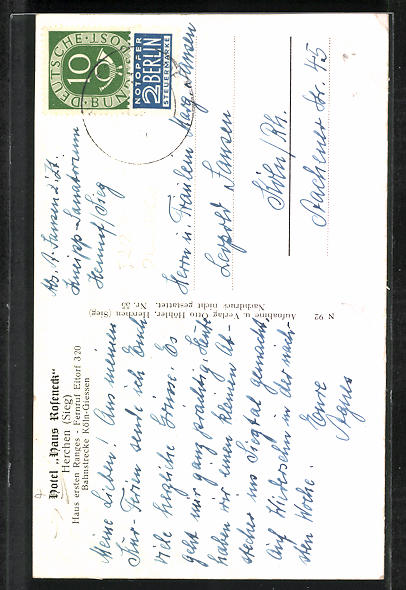 Hotel „Haus Roseneck“
Herchen (Sieg)
Haus ersten Ranges - Fernruf Eitorf 320
Bahnstrecke Köln-Giessen
Meine Lieben! Aus meinen
Kur-Ferien sende ich Euch
viele herzliche Grüsse. Es
geht mir ganz prächtig. Heute
haben wir einen kleinen Ab-
stecher ins Siegtal gemacht.
Auf Wiedersehn in der näch-
sten Woche.
Eure
Agnes
N 92
Aufnahme u. Verlag Otto Höhler, Herchen (Sieg)
Nachdruck nicht gestattet. Nr. 55
Abs. A. Jansen z. Zt.
Kneipp-Sanatorium
Hennef/Sieg
DEUTSCHE·POST
BUNDESPOST
10
NOTOPFER
2 BERLIN
STEUERMARKE
Herrn u. Fräulein Marg. Jansen
Leopold Jansen
Köln/Rh.
Aachener Str. 45